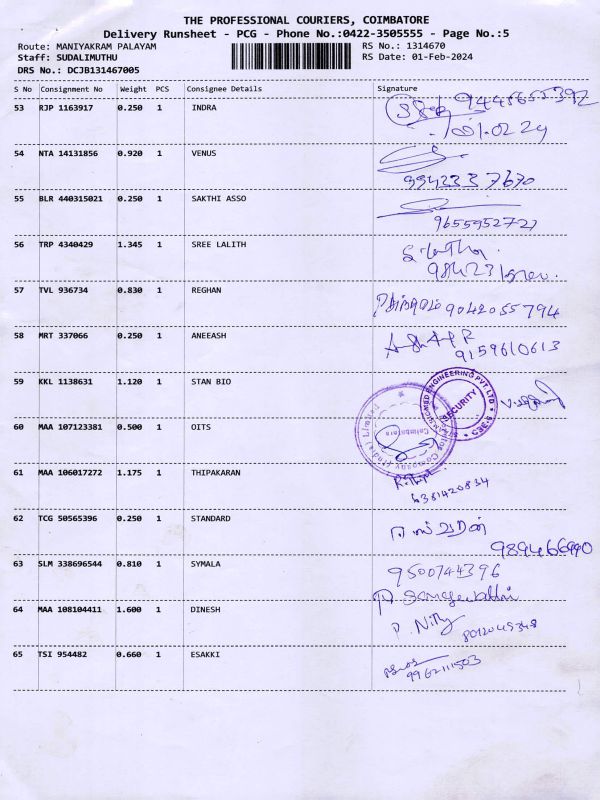 THE PROFESSIONAL COURIERS, COIMBATORE
Delivery Runsheet - PCG - Phone No.:0422-3505555 - Page No.:5
Route: MANIYAKRAM PALAYAM RS No.: 1314670
Staff: SUDALIMUTHU RS Date: 01-Feb-2024
DRS No.: DCJB131467005
S No Consignment No Weight PCS Consignee Details Signature
53 RJP 1163917 0.250 1 INDRA 9445655392
01.02.24
54 NTA 14131856 0.920 1 VENUS
9942337670
55 BLR 440315021 0.250 1 SAKTHI ASSO
9655952721
56 TRP 4340429 1.345 1 SREE LALITH
57 TVL 936734 0.830 1 REGHAN 9042055794
58 MRT 337066 0.250 1 ANEEASH
9159610613
59 KKL 1138631 1.120 1 STAN BIO
ENGINEERING PVT.LTD
SECURITY
60 MAA 107123381 0.500 1 OITS
Company (India) Limited
Coimbatore
61 MAA 106017272 1.175 1 THIPAKARAN
6381420834
62 TCG 50565396 0.250 1 STANDARD
9894466990
63 SLM 338696544 0.810 1 SYMALA 9500744396
64 MAA 108104411 1.600 1 DINESH P. Nithy 8012045348
65 TSI 954482 0.660 1 ESAKKI
9962111503